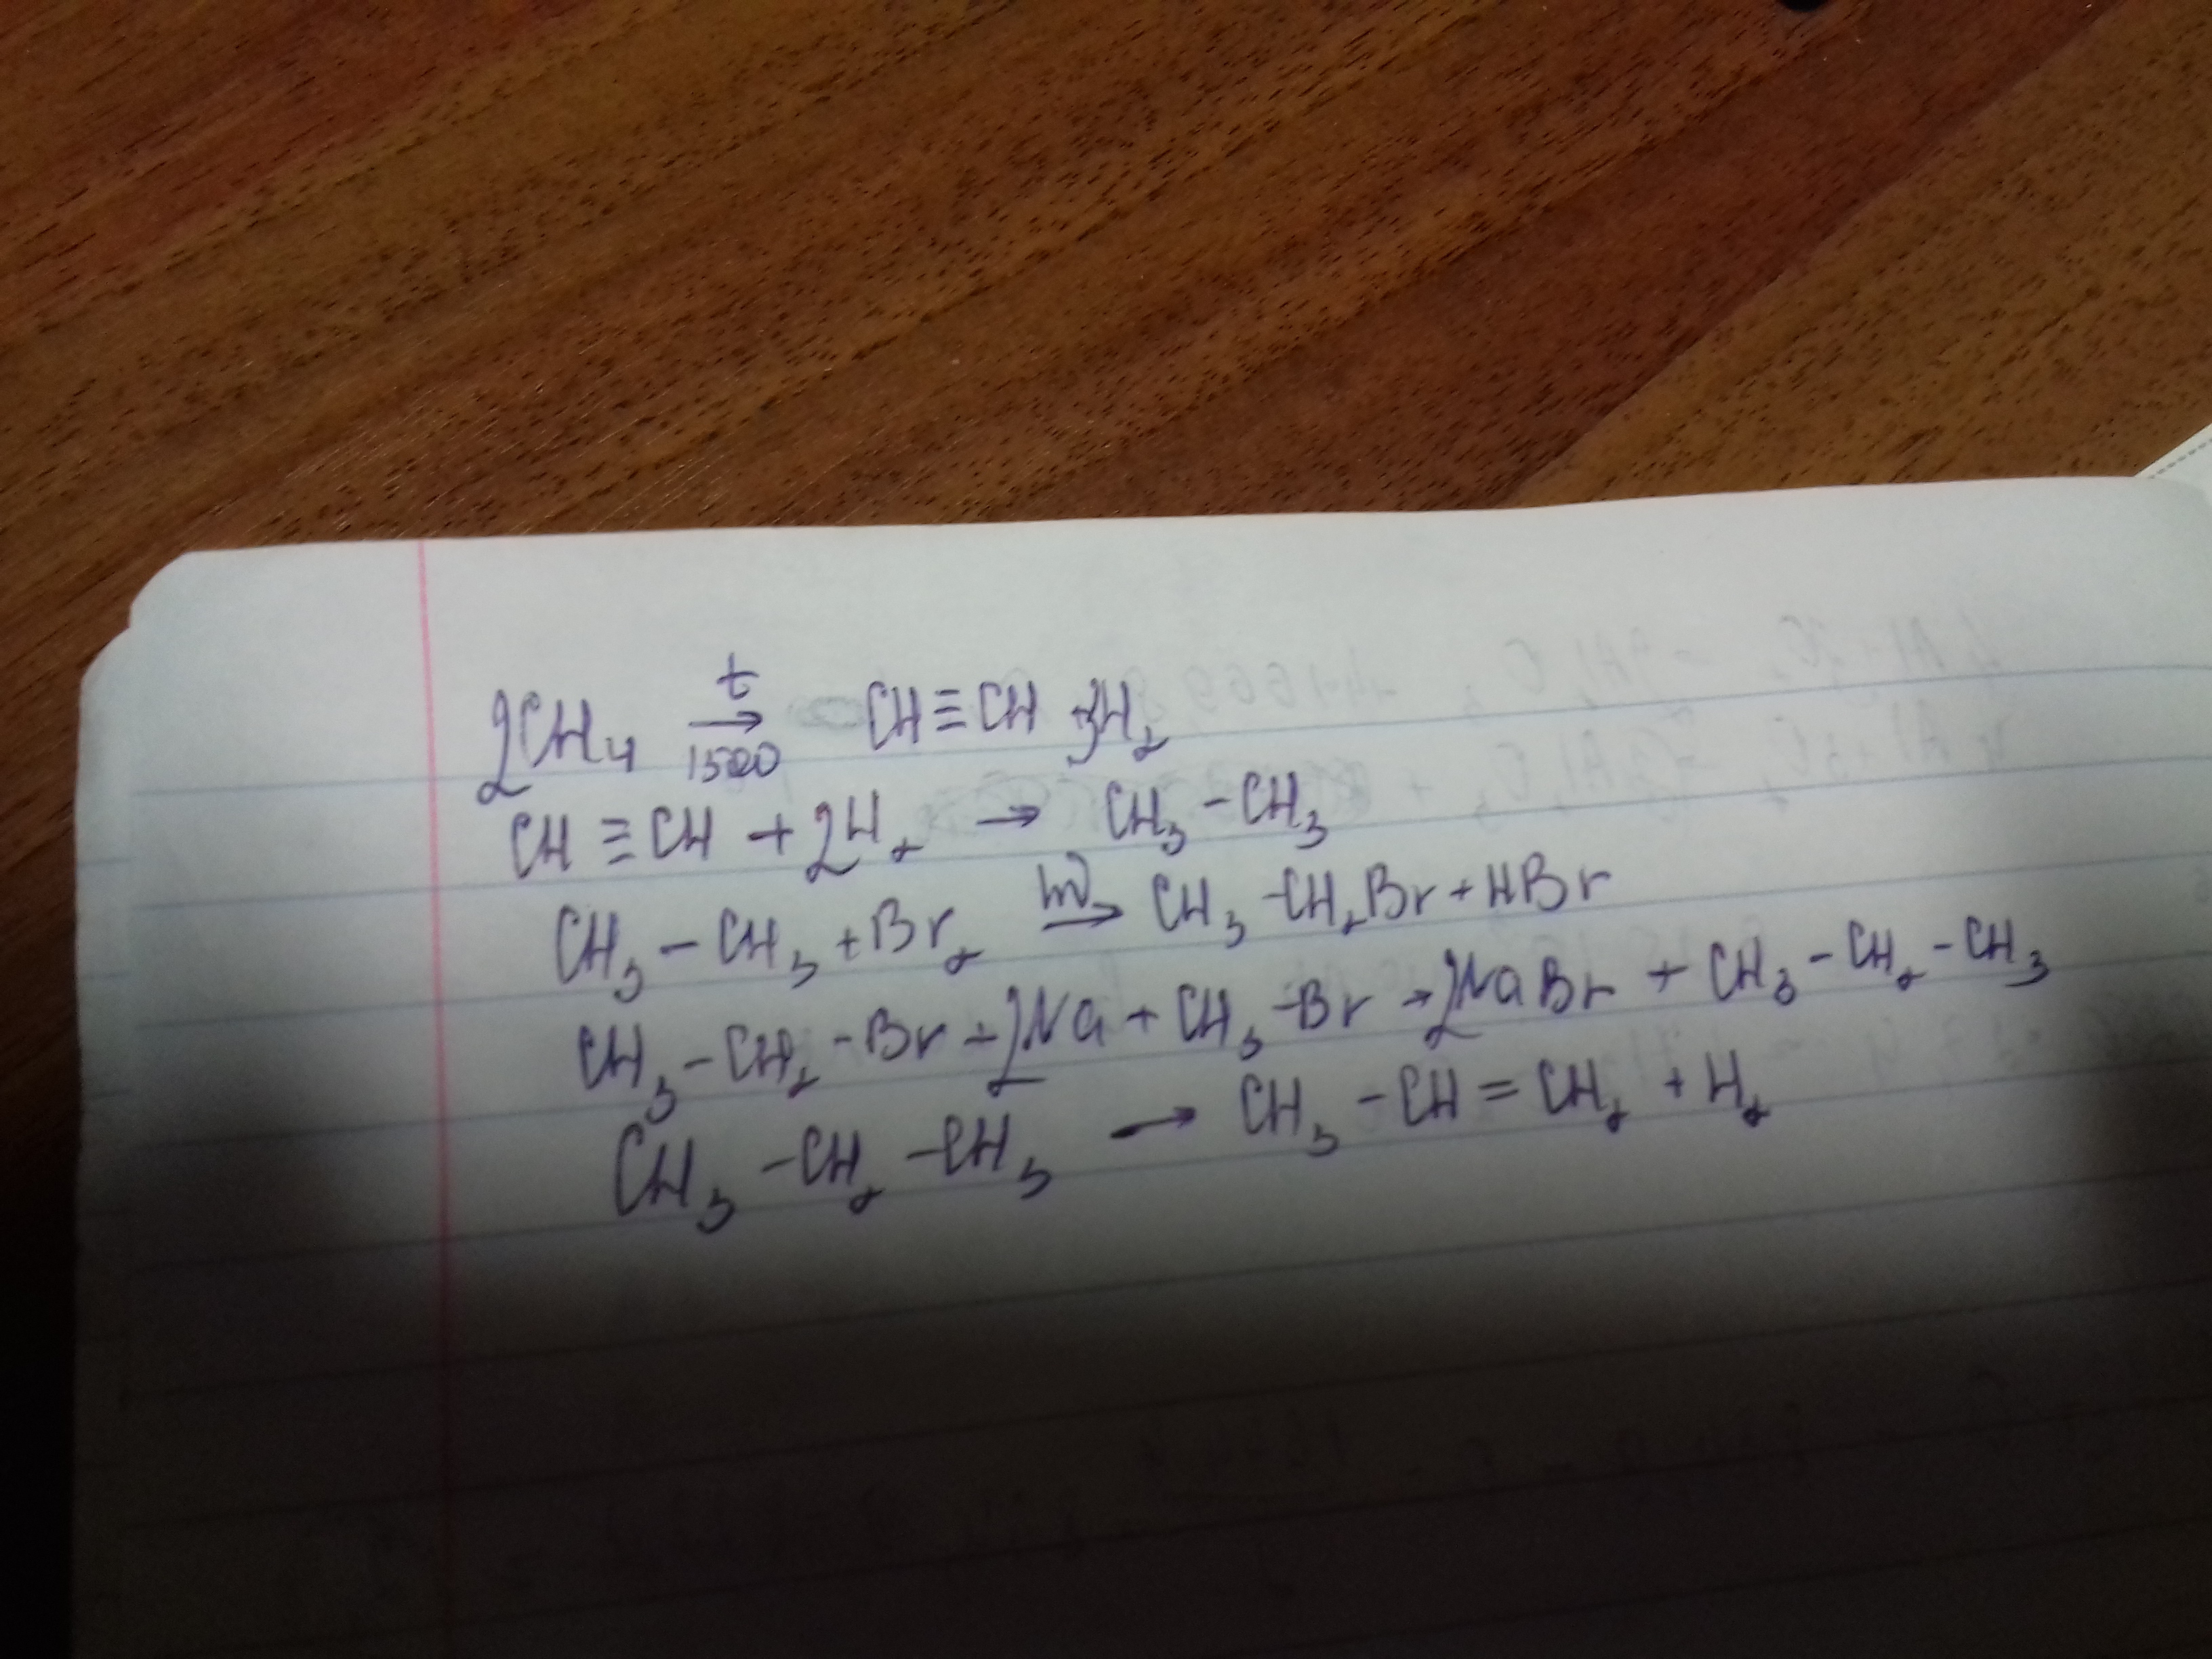 2CH₄ →(t, 1500) CH≡CH + 3H₂
CH≡CH + 2H₂ → CH₃–CH₃
CH₃–CH₃ + Br₂ →(hν) CH₃–CH₂Br + HBr
CH₃–CH₂–Br + 2Na + CH₃–Br → 2NaBr + CH₃–CH₂–CH₃
CH₃–CH₂–CH₃ → CH₃–CH=CH₂ + H₂